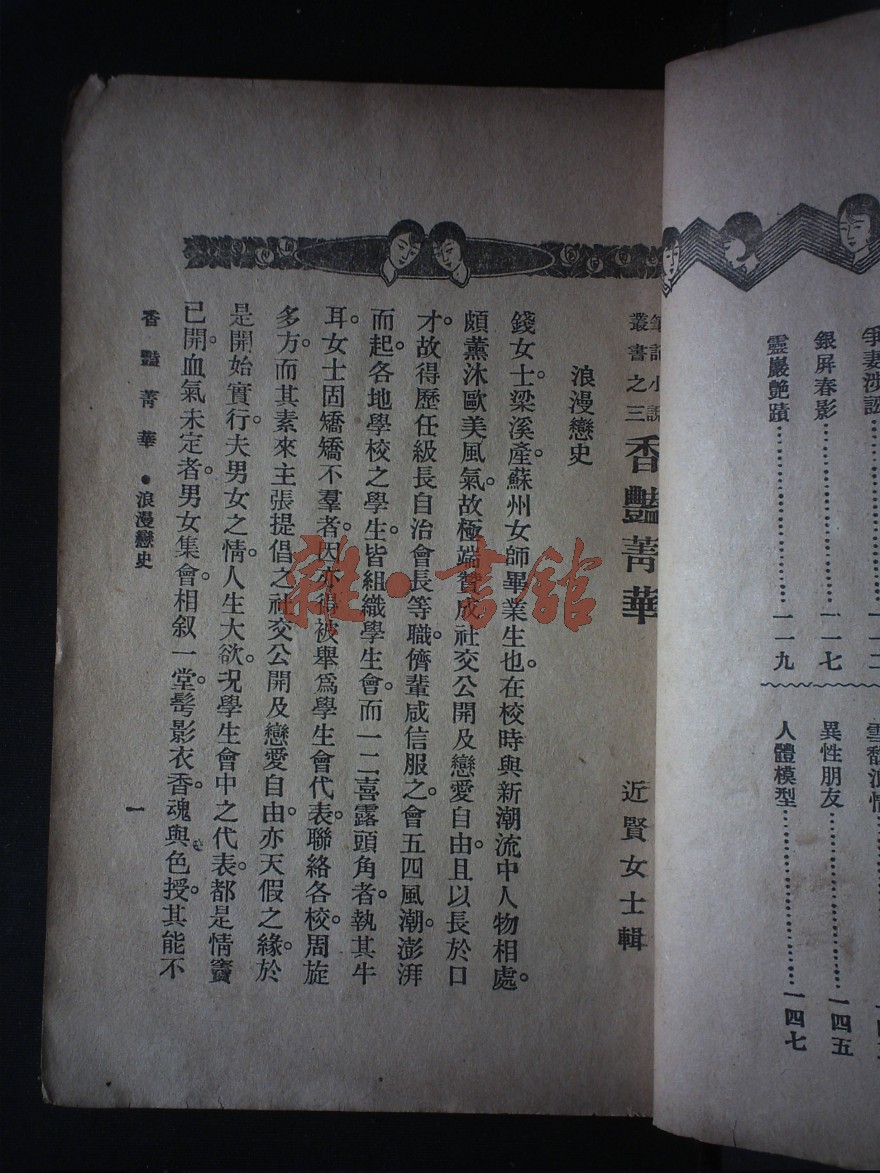 爭妻涉訟
銀屏春影⋯⋯一一七
靈巖艶蹟⋯⋯一一九
異性朋友⋯⋯一四五
人體模型⋯⋯一四七
筆記小說
叢書之三
香豔菁華
近賢女士輯
浪漫戀史
錢女士。梁溪產。蘇州女師畢業生也。在校時與新潮流中人物相處。
頗薰沐歐美風氣。故極端贊成社交公開及戀愛自由。且以長於口
才。故得歷任級長自治會長等職。儕輩咸信服之。會五四風潮。澎湃
而起。各地學校之學生。皆組織學生會。而一二喜露頭角者。執其牛
耳。女士固矯矯不羣者。因亦得被舉爲學生會代表。聯絡各校。周旋
多方。而其素來主張提倡之社交公開及戀愛自由。亦天假之緣。於
是開始實行。夫男女之情。人生大欲。况學生會中之代表。都是情竇
已開。血氣未定者。男女集會。相叙一堂。髩影衣香。魂與色授。其能不
香豔菁華●浪漫戀史
一
雜·書館